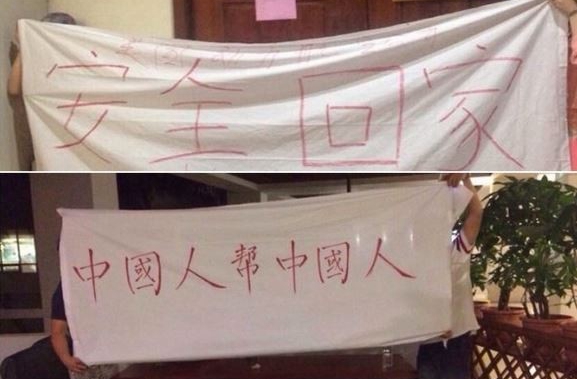 安全回家
中國人帮中國人